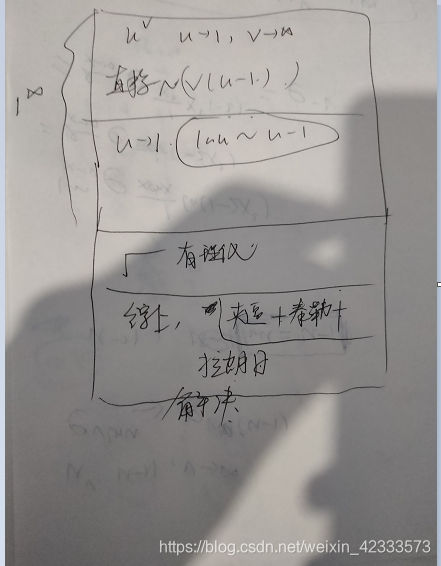 1^∞
u^v u→1, v→∞
直接~(v(u-1))
u→1. lnu ~ u-1
√ 有理化
综上, 夹逼+泰勒+
拉朗日
解决
https://blog.csdn.net/weixin_42333573